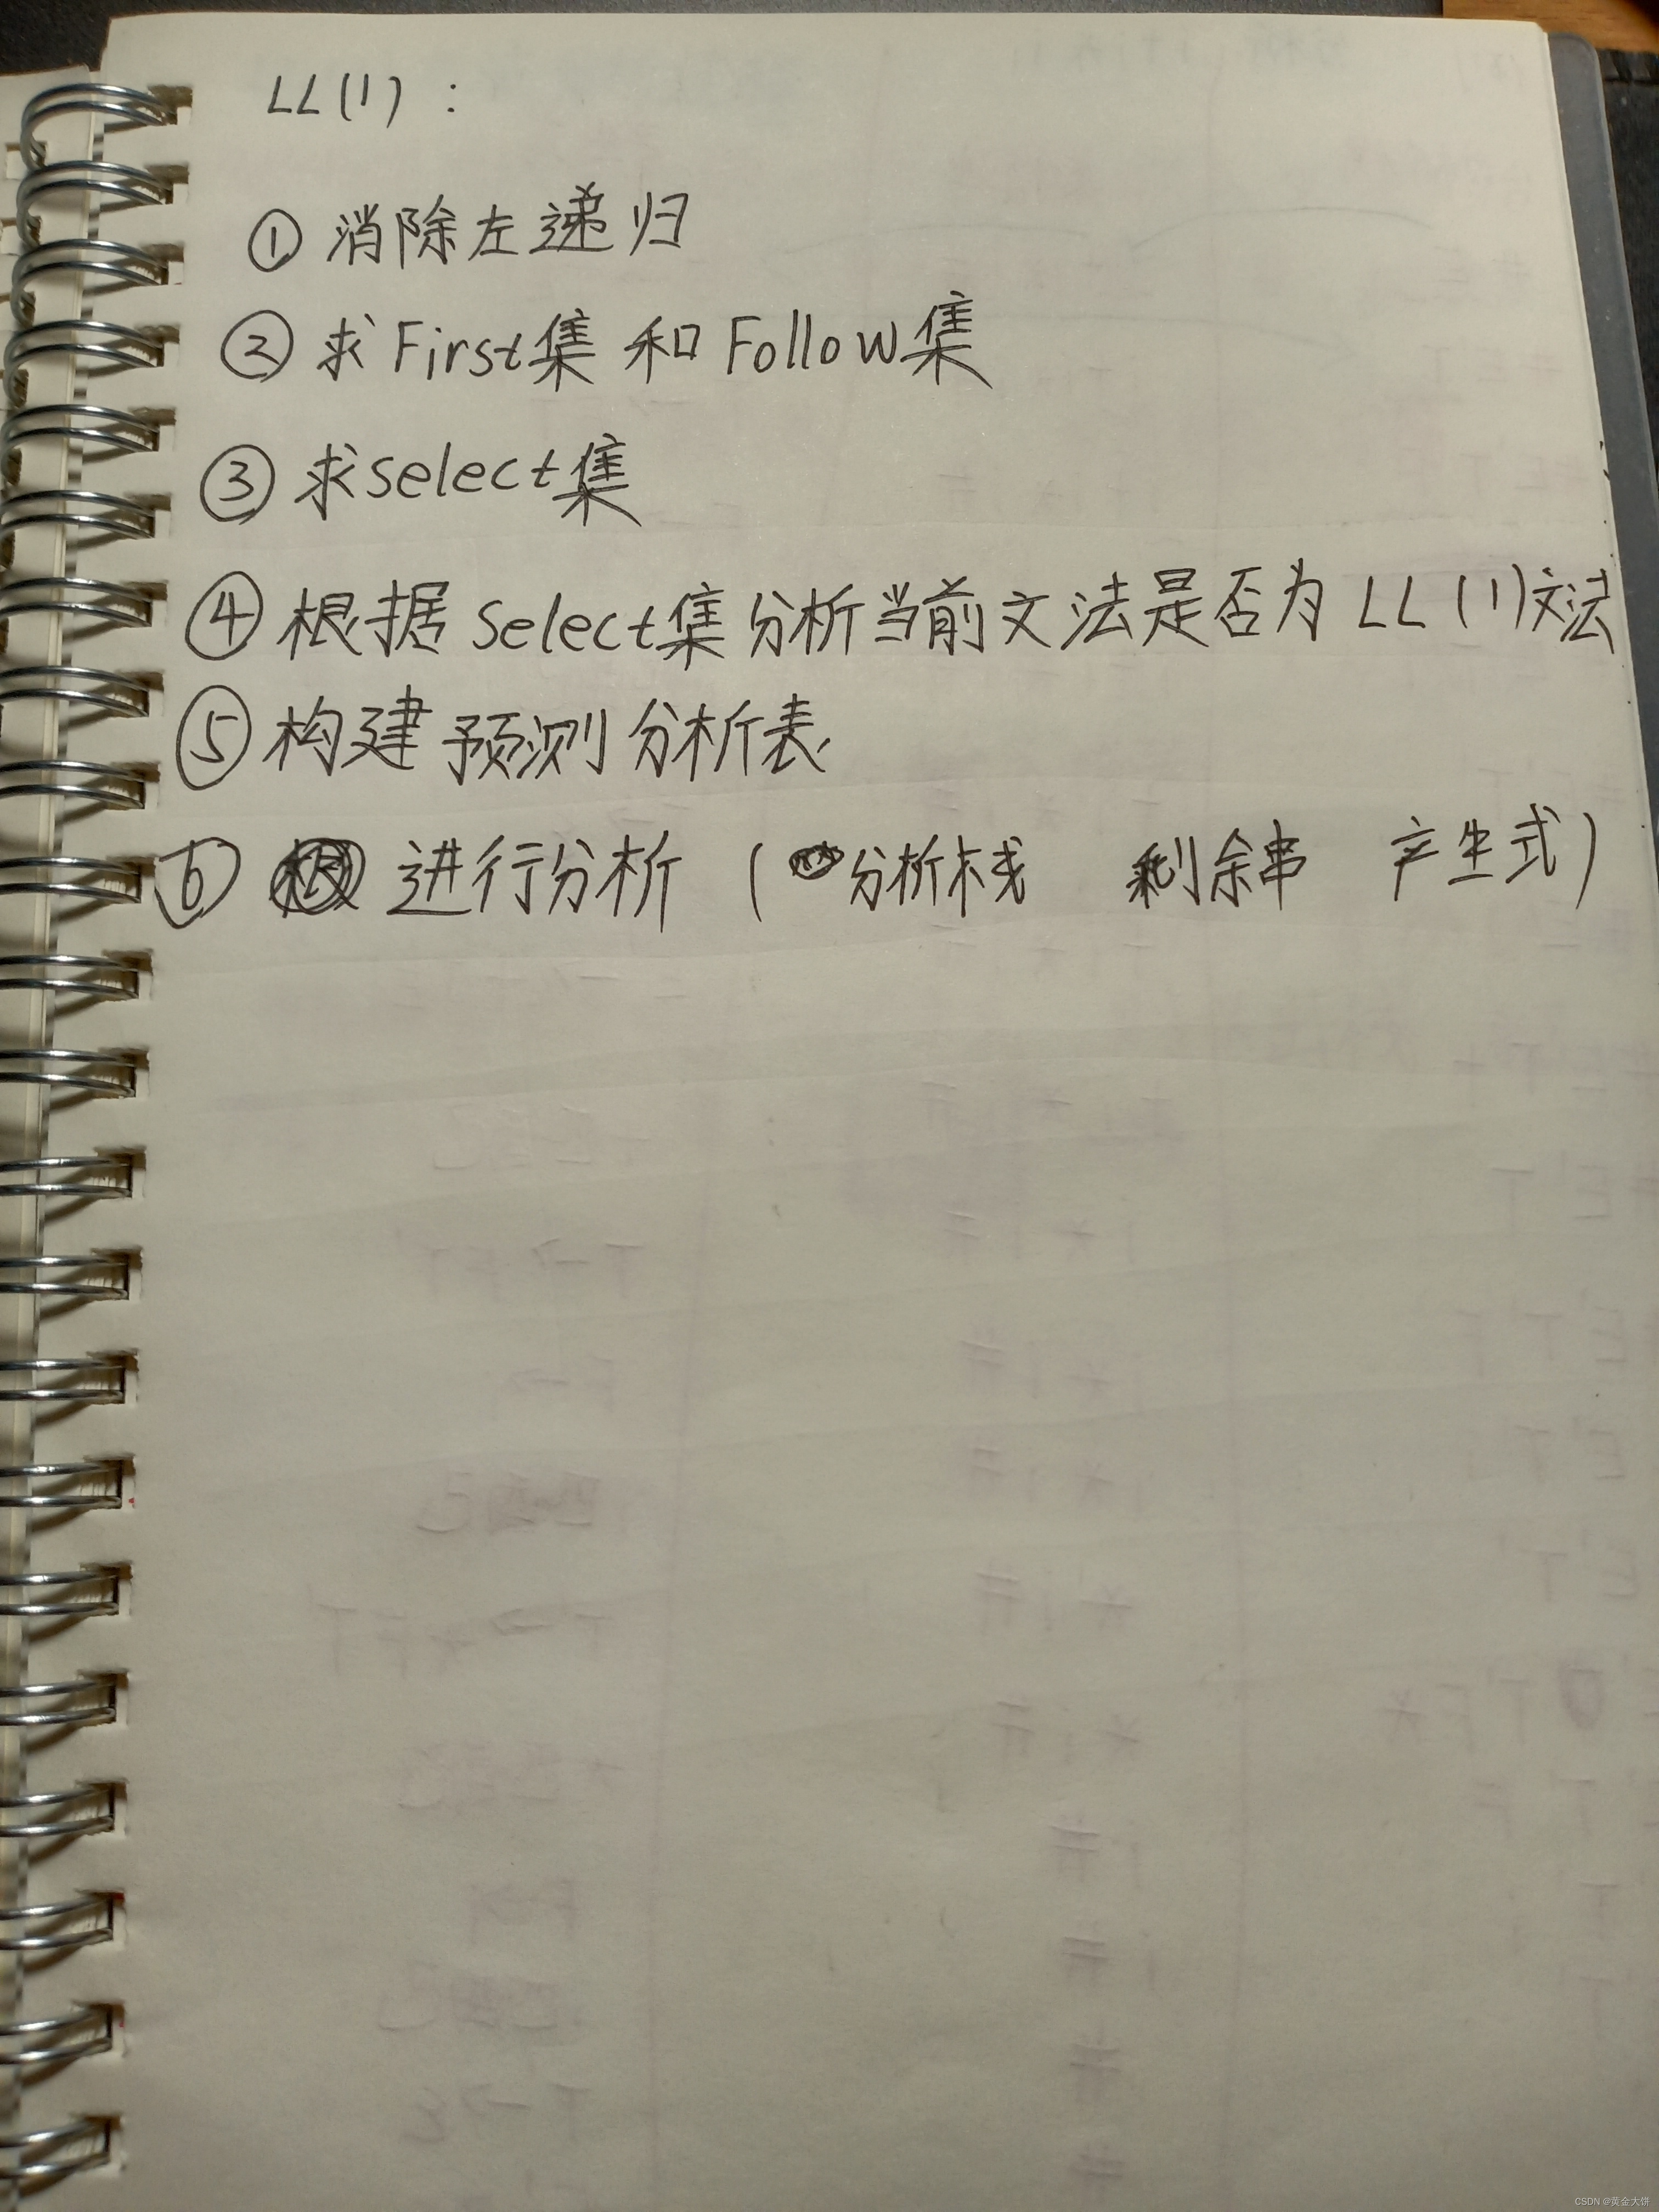 LL(1):
① 消除左递归
② 求First集和Follow集
③ 求select集
④ 根据select集分析当前文法是否为LL(1)文法
⑤ 构建预测分析表
⑥ 进行分析(分析栈 剩余串 产生式)
CSDN @黄金大饼